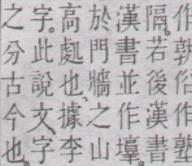 俗作
隔。若後漢書
漢書並作墇
於門牆之山
高處也、據李
字。此說文、字
之分古今也。